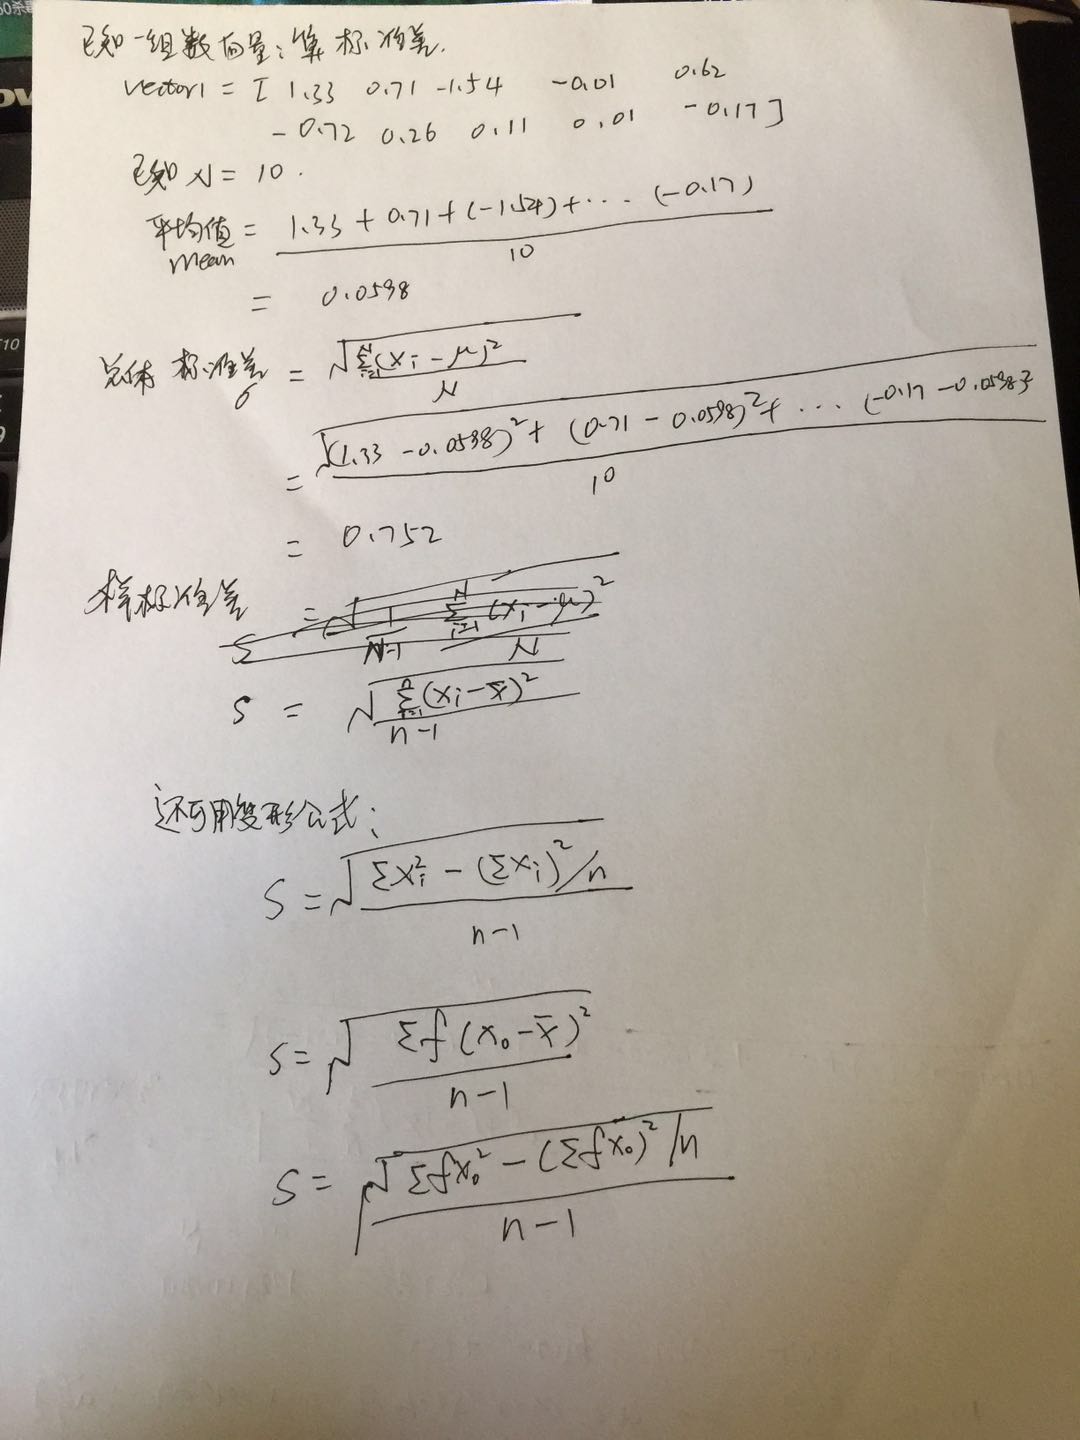 已知一组数向量；算标准差.
vector1 = [ 1.33 0.71 -1.54 -0.01 0.62
-0.72 0.26 0.11 0.01 -0.17 ]
已知 N = 10 .
平均值 mean = (1.33 + 0.71 + (-1.54) + ... (-0.17)) / 10
= 0.0598
总体标准差 σ = √(Σ_{i=1}^{N}(x_i - μ)² / N)
= √((1.33 - 0.0598)² + (0.71 - 0.0598)² + ... (-0.17 - 0.0598)² / 10)
= 0.752
样标准差
S = √(Σ_{i=1}^{n}(x_i - x̄)² / n-1)
还可用变形公式；
S = √(Σx_i² - (Σx_i)²/n / n-1)
S = √(Σf(x₀ - x̄)² / n-1)
S = √(Σfx₀² - (Σfx₀)²/n / n-1)